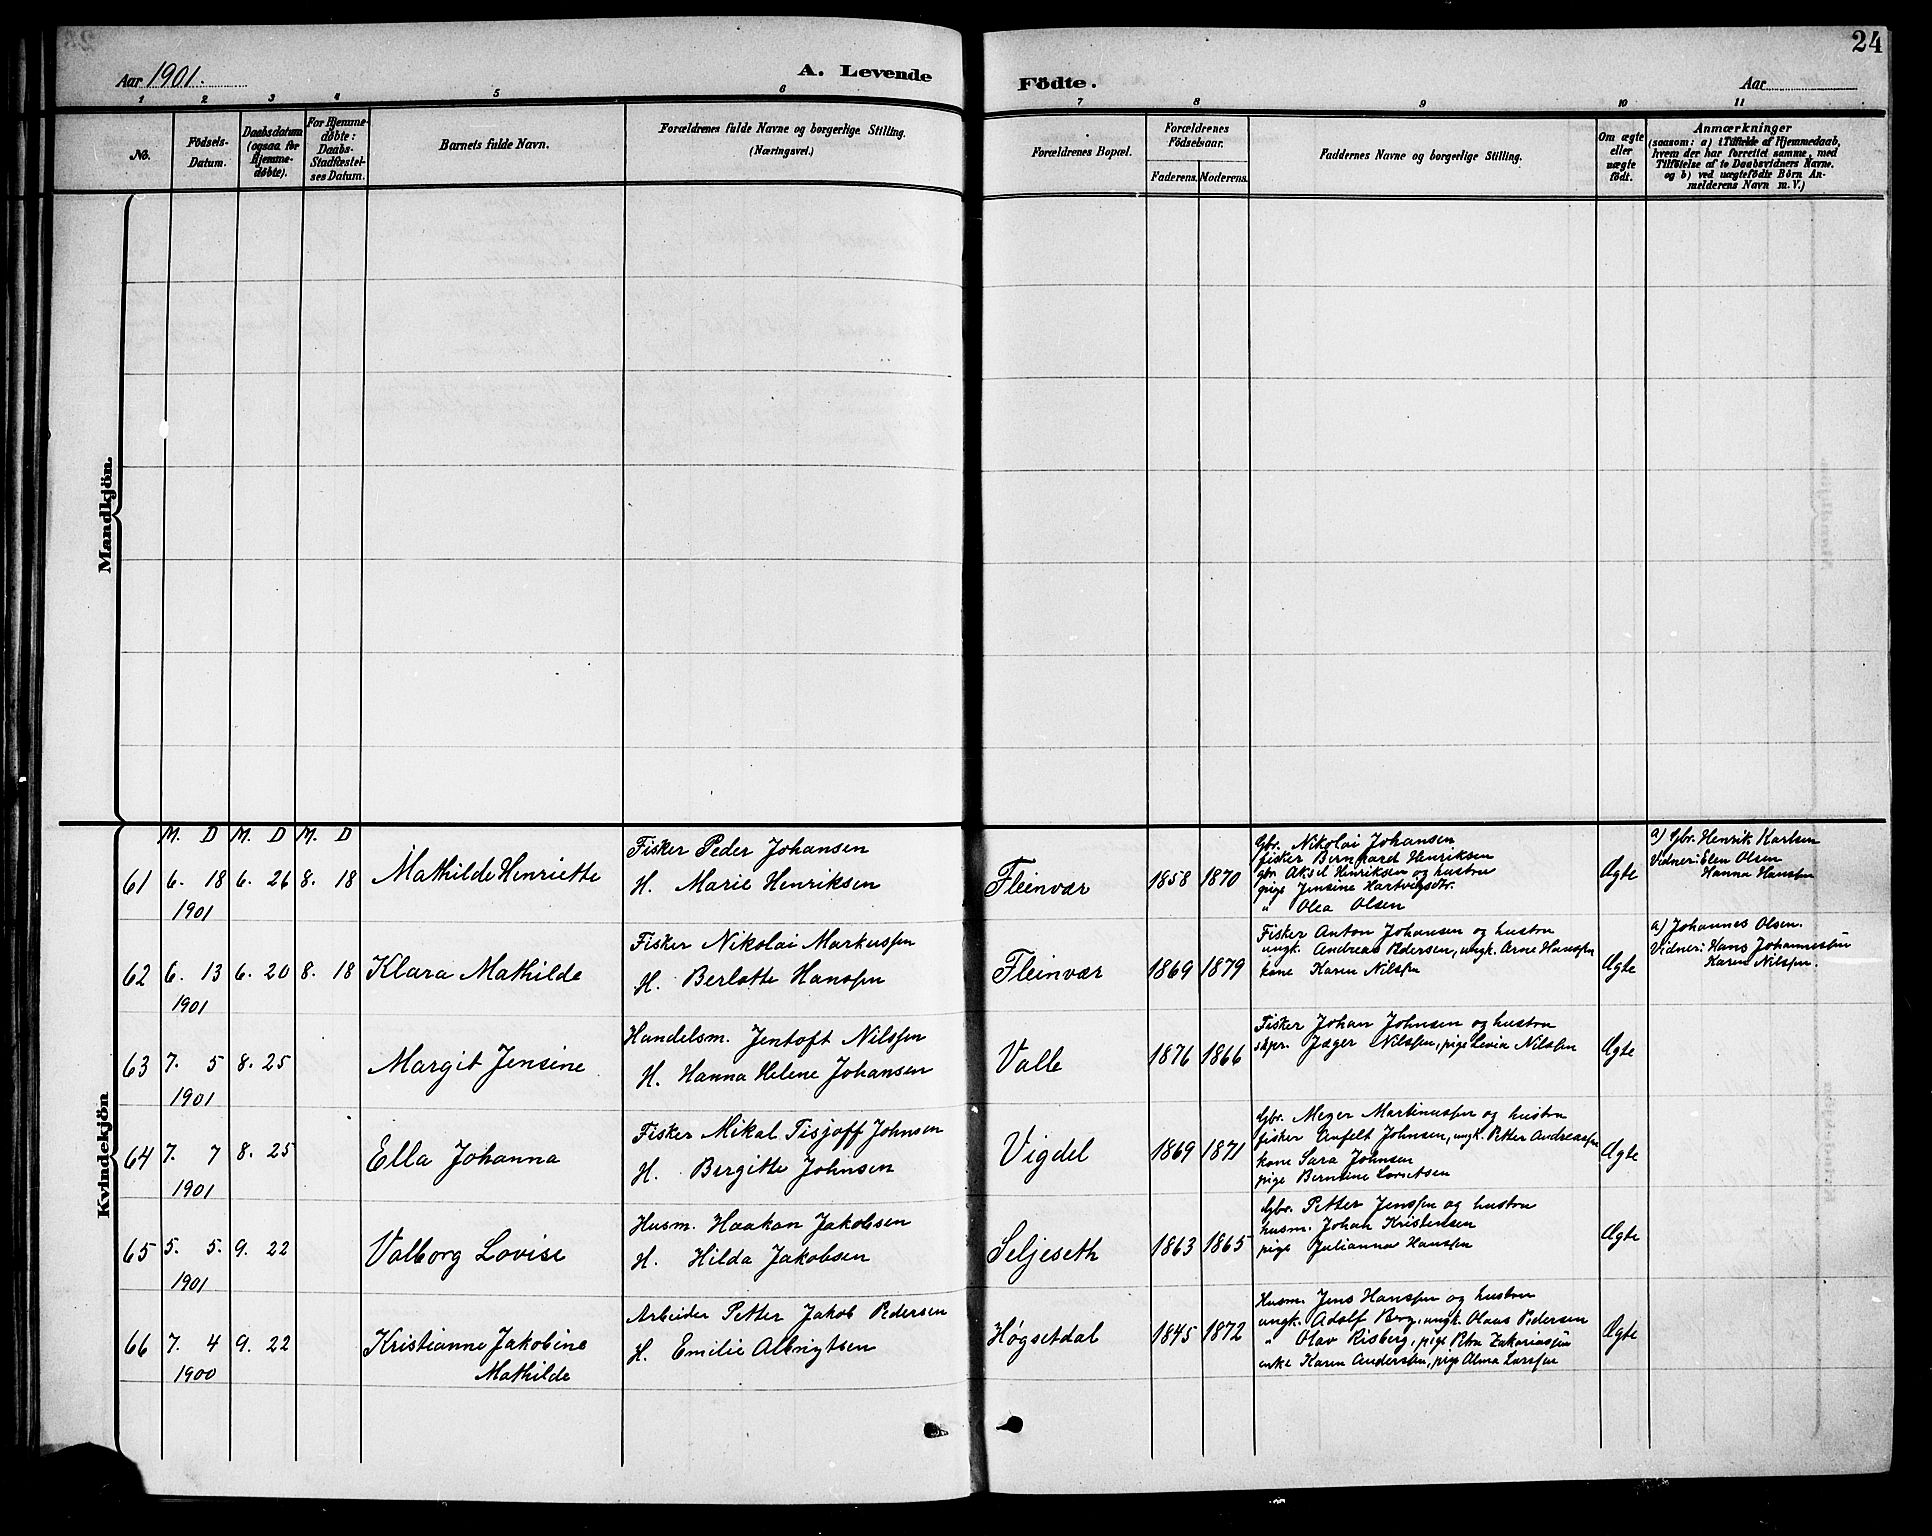 24
Aar 1901.
A. Levende
Födte.
Aar
1 2 3 4 5 6 7 8 9 10 11
No.
Födsels-
Datum.
Daabsdatum
(ogsaa for
Hjemme-
døbte).
For Hjemme-
døbte:
Daabs-
Stadfæstel-
ses Datum.
Barnets fulde Navn.
Forældrenes fulde Navne og borgerlige Stilling.
(Næringsvei.)
Forældrenes Bopæl.
Forældrenes
Födselsaar.
Faderens. Moderens.
Faddernes Navne og borgerlige Stilling.
Om ægte
eller
uægte
födt.
Anmærkninger
(saasom: a) i Tilfælde af Hjemmedaab,
hvem der har forrettet samme, med
Tilföielse af to Daabsvidners Navne.
og b) ved uægtefödte Börn An-
melderens Navn m. V.)
Mandkjön.
Kvindekjön
M. D M. D M. D
61 6. 18 6. 26 8. 18
1901
Mathilde Henriette
Fisker Peder Johansen
H. Marie Henriksen
Fleinvær
1858 1870
Gbr. Nikolai Johansen
fisker Bernhard Henriksen
gbr. Aksel Henriksen og hustru
pige Jensine Hartvigsdtr.
" Olea Olsen
Ægte
a) Gbr. Henrik Karlsen
Vidner: Elen Olsen
Hanna Hanssen
62 6. 13 6. 20 8. 18
1901
Klara Mathilde
Fisker Nikolai Markussen
H. Berlotte Hanssen
Fleinvær
1869 1879
Fisker Anton Johansen og hustru
ungk. Andreas Pedersen, ungk. Arne Hanssen
kone Karen Nilssen
Ægte
a) Johannes Olsen.
Vidner: Hans Johannessen
Karen Nilssen.
63 7. 5 8. 25
1901
Margit Jensine
Handelsm. Jentoft Nilssen
H. Hanna Helene Johansen
Valle
1876 1866
Fisker Johan Johnsen og hustru
skpr. Jæger Nilssen, pige Levia Nilssen
Ægte
64 7. 7 8. 25
1901
Ella Johanna
Fisker Mikal Tisjoff Johnsen
H. Bergitte Johnsen
Vigdel
1869 1871
Gbr. Meyer Martinussen og hustru
fisker Anfelt Johnsen, ungk. Petter Andreassen
kone Sara Johnsen
pige Berntine Lorntsen
Ægte
65 5. 5. 9. 22
1901
Valborg Lovise
Husm. Haakon Jakobsen
H. Hilda Jakobsen
Seljeseth
1863 1865
Gbr. Petter Jenssen og hustru
husm. Johan Kristensen
pige Julianna Hanssen
Ægte
66 7. 4 9. 22
1900
Kristianne Jakobine
Mathilde
Arbeider Petter Jakob Pedersen
H. Emilie Albrigtsen
Høgsetdal
1845 1872
Husm. Jens Hanssen og hustru
ungk. Adolf Berg, ungk. Olaus Pedersen
" Olav Risberg, pige Petra Zakariassen
enke Karen Anderssen, pige Alma Larssen
Ægte